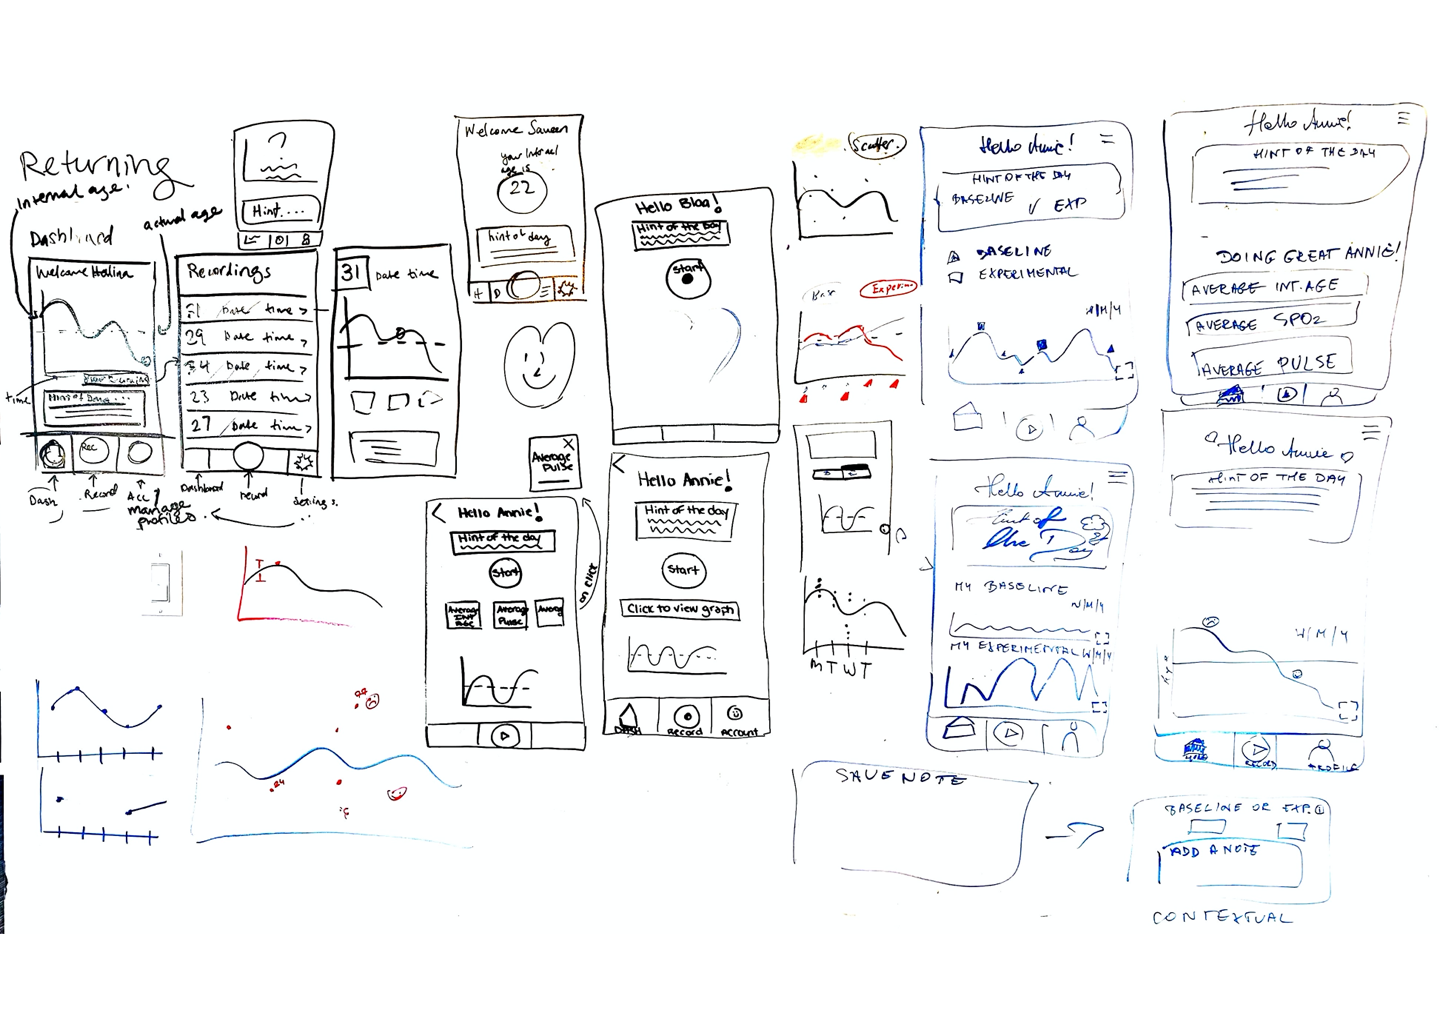 Returning
Internal age.
actual age
Dashboard
Welcome Halina
time
Hint of Day ...
Rec
Dash
Record
Acc /
manage
profiles.
?
Hint....
Recordings
31 Date time >
29 Date time >
34 Date time >
23 Date time >
27 Date time >
Dashboard
record
31 Date time
Welcome Saneen
your Internal
age is
22
hint of day
H
Average
Pulse
X
Hello Annie!
Hint of the day
Start
Average
INT
AGE
Average
Pulse
Average
on click
Hello Bloa!
Hint of the Day
Start
Hello Annie!
Hint of the day
Start
Click to view graph
DASH
Record
Account
Scatter.
Base
M T W T
Hello Annie!
HINT OF THE DAY
BASELINE
✓ EXP
BASELINE
EXPERIMENTAL
W/M/Y
Hello Annie!
Hint of
the Day
MY BASELINE
W/M/Y
MY EXPERIMENTAL W/M/Y
Hello Annie!
HINT OF THE DAY
DOING GREAT ANNIE!
AVERAGE INT. AGE
AVERAGE SPO2
AVERAGE PULSE
Hello Annie
HINT OF THE DAY
W/M/Y
RECORD
PROFILE
24
SAVE NOTE
BASELINE OR EXP.
ADD A NOTE
CONTEXTUAL